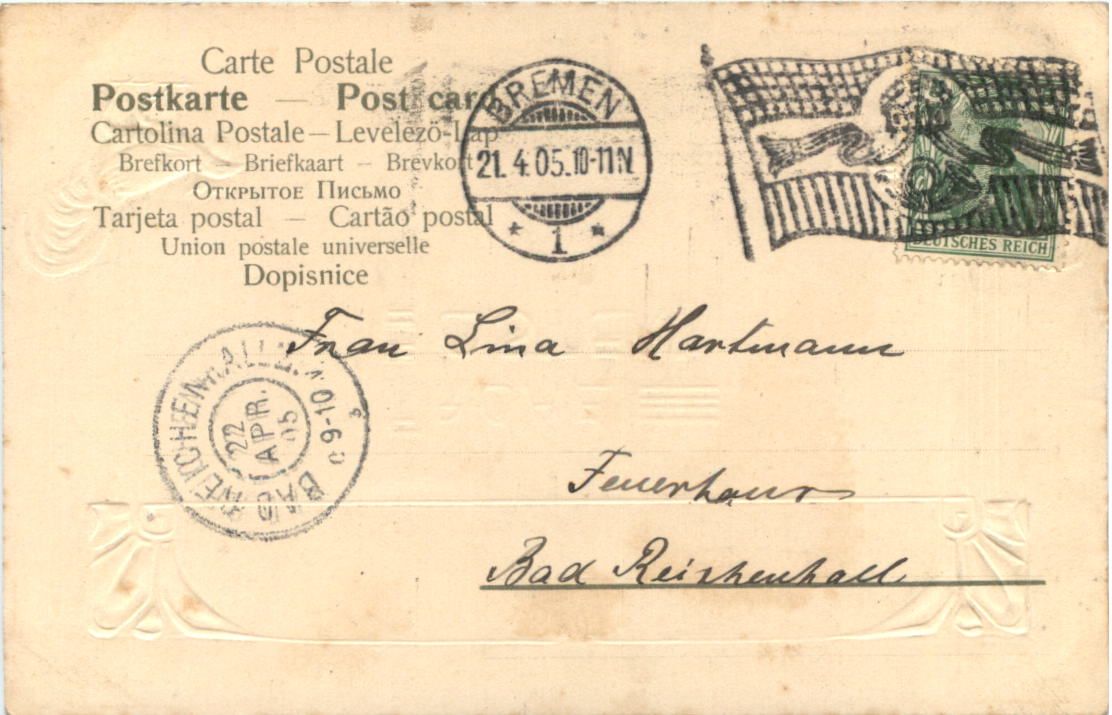 Carte Postale
Postkarte — Post card
Cartolina Postale — Levelező-Lap
Brefkort — Briefkaart — Brevkort
Открытое Письмо
Tarjeta postal — Cartão postal
Union postale universelle
Dopisnice
BREMEN
21. 4. 05. 10-11 N.
* 1 *
DEUTSCHES REICH
Frau Lina Hartmann
BAD REICHENHALL
22 APR. 05
9-10
Feuerhaus
Bad Reichenhall